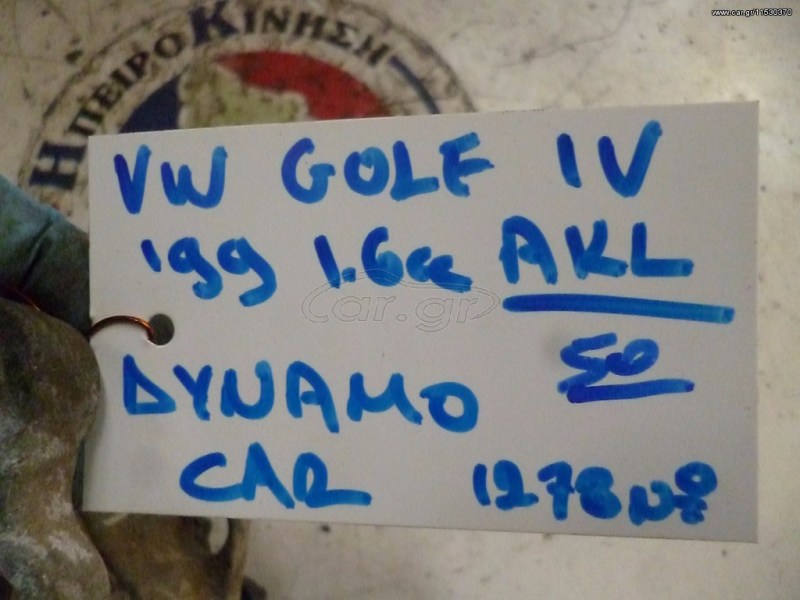 www.car.gr/11530370
ΗΠΕΙΡΟΚΙΝΗΣΗ
VW GOLF IV
'99 1.6cc AKL
car.gr
50
DYNAMO
CAR 1278 Nº